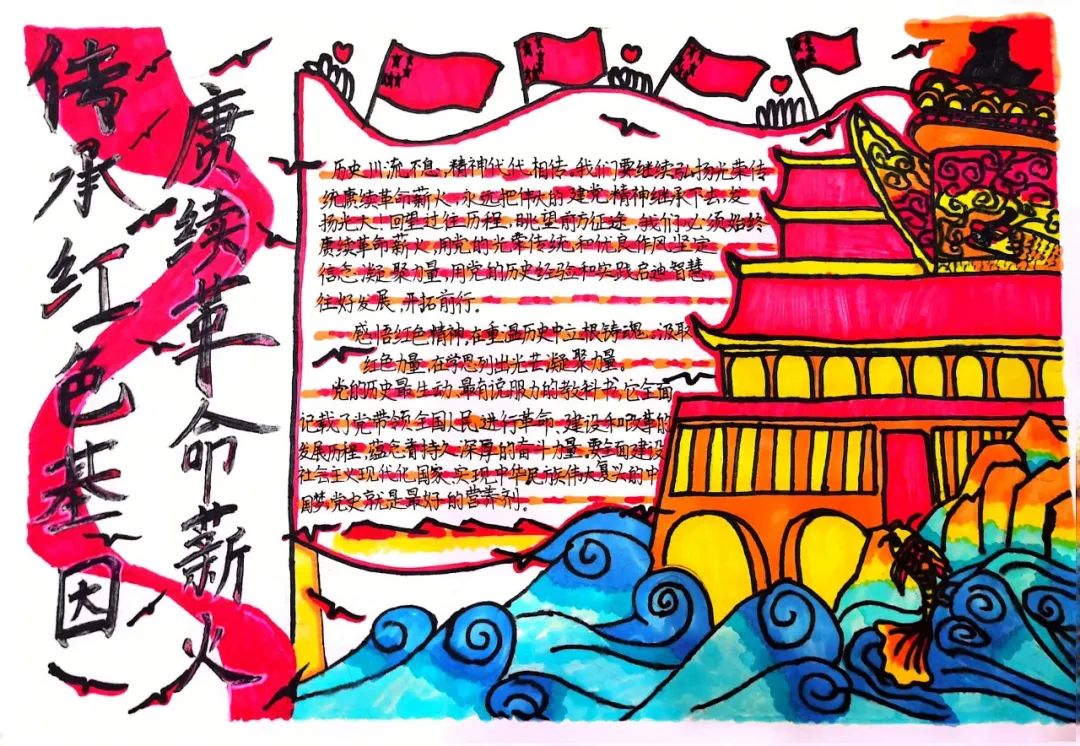 传承红色基因
赓续革命薪火
历史川流不息,精神代代相传。我们要继续弘扬光荣传
统赓续革命薪火,永远把伟大的建党精神继承下去,发
扬光大!回望过往历程,眺望前方征途,我们必须始终
赓续革命薪火,用党的光荣传统和优良作风坚定
信念,凝聚力量,用党的历史经验和实践启迪智慧。
往好发展,开拓前行。
感悟红色精神,在重温历史中立根铸魂。汲取
红色力量,在学思列出光芒凝聚力量。
党的历史最生动、最有说服力的教科书,它全面
记载了党带领全国人民进行革命、建设和改革的
发展历程,蕴含着持久深厚的奋斗力量。要全面建设
社会主义现代化国家、实现中华民族伟大复兴的中
国梦,党史就是最好的营养剂。